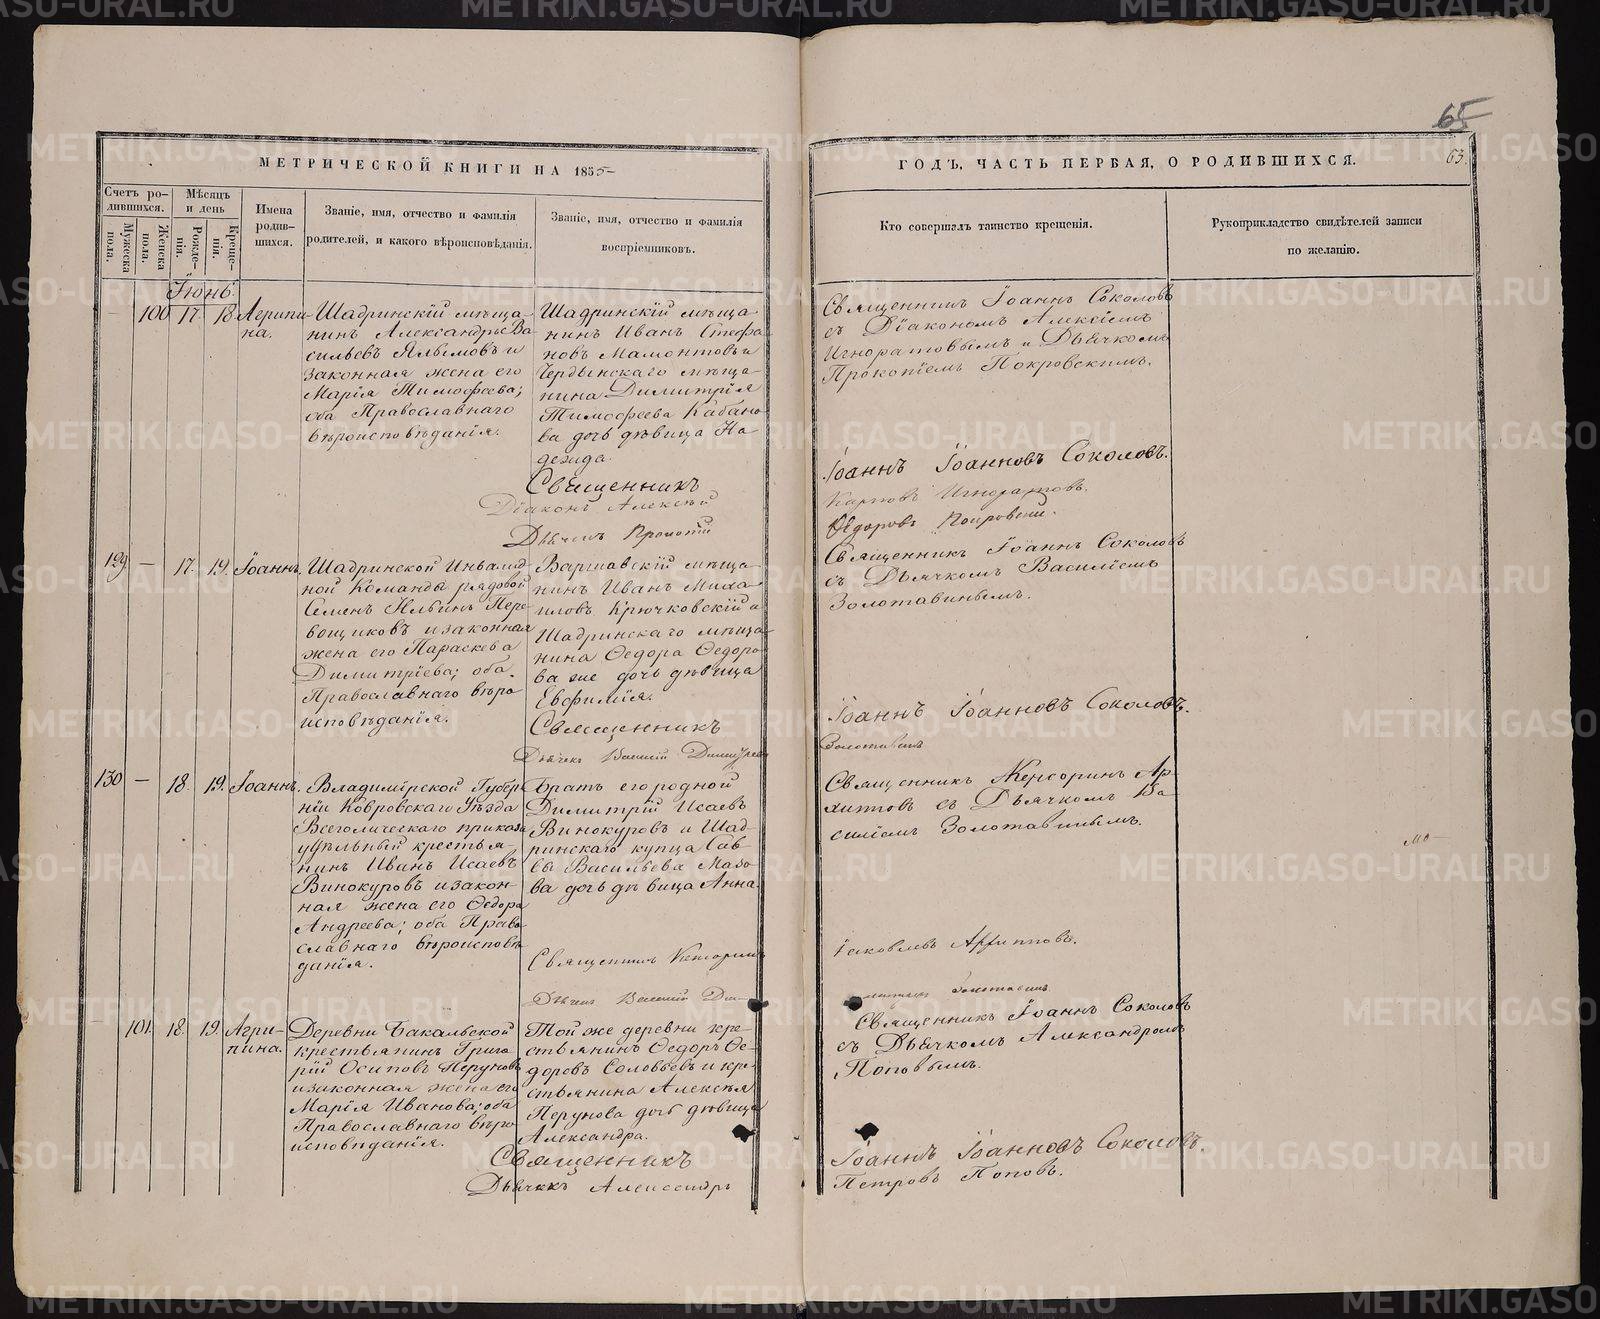 65
МЕТРИЧЕСКОЙ КНИГИ НА 1855
ГОДЪ, ЧАСТЬ ПЕРВАЯ, О РОДИВШИХСЯ.
63.
Счетъ ро-
дившихся.
Мужеска пола.
Женска пола.
Мѣсяцъ
и день
Рожде-
нія.
Креще-
нія.
Имена
родив-
шихся.
Званіе, имя, отчество и фамилія
родителей, и какого вѣроисповѣданія.
Званіе, имя, отчество и фамилія
воспріемниковъ.
Кто совершалъ таинство крещенія.
Рукоприкладство свидѣтелей записи
по желанію.
Іюнь.
100 17. 18.
Шадринскій мѣща-
нинъ Александръ Ва
сильевъ и
законная жена его
Марія Тимофеева;
оба Православнаго
вѣроисповѣданія.
Шадринскій мѣща
нинъ Иванъ Стефа
новъ Мамонтовъ и
Чердынскаго мѣща-
нина Димитрія
Тимофеева Кабано
ва дочь дѣвица На
дежда.
Священникъ
Діаконъ Алексѣй
Дьячекъ Прокопій
Священникъ Іоаннъ Соколовъ
съ Діакономъ Алексіемъ
Игноратовымъ и Дьячкомъ
Прокопіемъ Покровскимъ.
Іоаннъ Іоанновъ Соколовъ.
Карповъ Игноратовъ.
Ѳедоровъ
129 — 17. 19. Іоаннъ.
Шадринской Инвалид
ной Команды рядовой
Семенъ Ильинъ Пере
вощиковъ и законная
жена его Параскева
Димитріева; оба
Православнаго вѣро
исповѣданія.
Варшавскій мѣща
нинъ Иванъ Миха
иловъ Крючковскій и
Шадринскаго мѣща
нина Ѳедора Ѳедоро
ва же дочь дѣвица
Евфимія.
Священникъ
Дьячекъ Василій
Священникъ Іоаннъ Соколовъ
съ Дьячкомъ Василіемъ
Золотавинымъ.
Іоаннъ Іоанновъ Соколовъ.
Золотавинъ
130 — 18. 19. Іоаннъ.
Владимірской Губер
ніи Ковровскаго Уѣзда
приказа
удѣльный крестья
нинъ Иванъ Исаевъ
Винокуровъ и закон-
ная жена его Ѳедора
Андреева; оба Право
славнаго вѣроисповѣ
данія.
Братъ его родной
Димитрій Исаевъ
Винокуровъ и Шад-
ринскаго купца Сав
вы Васильева Мазо
ва дочь дѣвица Анна.
Священникъ
Дьячекъ Василій
Священникъ
съ Дьячкомъ Ва
силіемъ Золотавинымъ.
Іаковлевъ
Золотавинъ
101. 18. 19. Агри-
пина.
Деревни Бакальской
крестьянинъ Григо-
рій Осиповъ Перуновъ
и законная жена его
Марія Иванова; оба
Православнаго вѣро
исповѣданія.
Той же деревни кре-
стьянинъ Ѳедоръ Ѳе-
доровъ Соловьевъ и кре-
стьянина Алексѣя
Перунова дочь дѣвица
Александра.
Священникъ
Дьячекъ Александръ
Священникъ Іоаннъ Соколовъ
съ Дьячкомъ Александромъ
Поповымъ.
Іоаннъ Іоанновъ Соколовъ.
Петровъ Поповъ.
METRIKI.GASO-URAL.RU